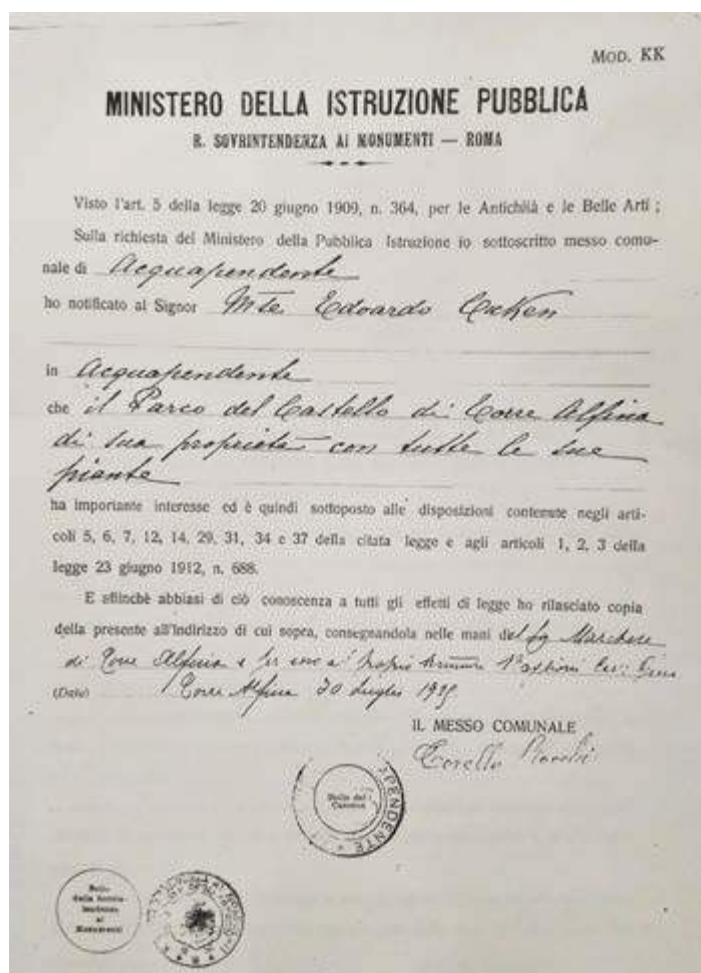 MOD. KK
MINISTERO DELLA ISTRUZIONE PUBBLICA
R. SOVRINTENDENZA AI MONUMENTI — ROMA
Visto l'art. 5 della legge 20 giugno 1909, n. 364, per le Antichità e le Belle Arti ;
Sulla richiesta del Ministero della Pubblica Istruzione io sottoscritto messo comu-
nale di Acquapendente
ho notificato al Signor Mse Edoardo Cahen
in Acquapendente
che il Parco del Castello di Torre Alfina
di sua proprietà con tutte le sue
piante
ha importante interesse ed è quindi sottoposto alle disposizioni contenute negli arti-
coli 5, 6, 7, 12, 14, 29, 31, 34 e 37 della citata legge e agli articoli 1, 2, 3 della
legge 23 giugno 1912, n. 688.
E affinchè abbiasi di ciò conoscenza a tutti gli effetti di legge ho rilasciato copia
della presente all'indirizzo di cui sopra, consegnandola nelle mani del Sig Marchese
di Torre Alfina e per esso a
(Data) Torre Alfina 30 Luglio
IL MESSO COMUNALE
Bollo del
Comune
PENDENTE
Bollo
della Sovrin-
tendenza
ai
Monumenti